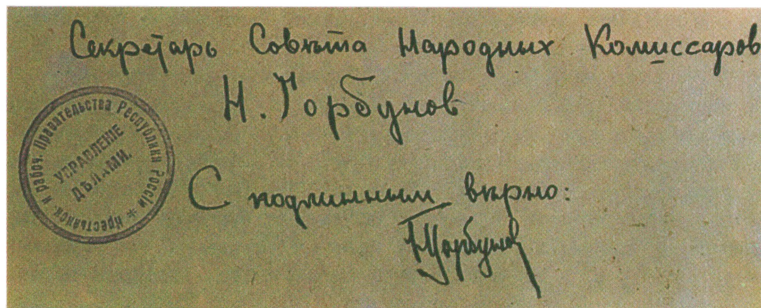 Секретарь Совѣта Народных Комиссаров
Н. Горбунов
Крестьянск. и Рабоч. Правительства Республики Россіи
УПРАВЛЕНІЕ
ДѢЛАМИ.
С подлинным вѣрно:
НГорбунов